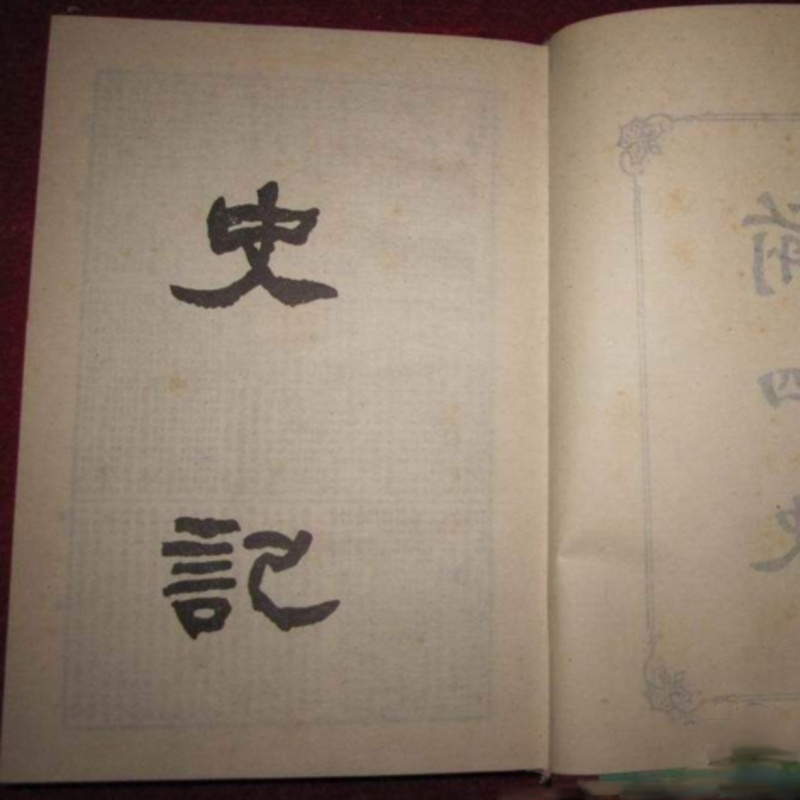 史
記
前
四
史